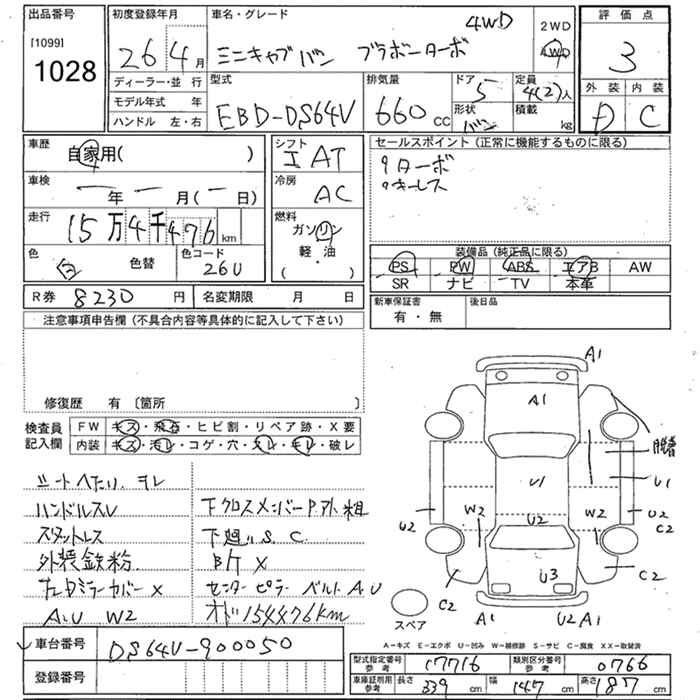 出品番号 初度登録年月 車名・グレード 4WD 2WD 評価点
[1099] 26 4月 ミニキャブバン ブラボーターボ 4WD 3
1028 ディーラー・並行 型式 排気量 ドア 5 定員 4(2)人 外装 内装
モデル年式 年 EBD-DS64V 660 CC 形状 バン 積載 kg D C
ハンドル 左・右
車歴 自家用( ) シフト I AT セールスポイント(正常に機能するものに限る)
車検 ー年ー月(ー日) 冷房 AC ターボ
キーレス
走行 15万4千476km 燃料 ガソリン
軽・油
( )
色 白 色替 色コード 26U 装備品(純正品に限る)
PS PW ABS エアB AW
SR ナビ TV 本革
R券 8230円 名変期限 月 日 新車保証書 有・無 後日品
注意事項申告欄(不具合内容等具体的に記入して下さい)
修復歴 有 〔箇所 〕
検査員記入欄 FW キズ・飛石・ヒビ割・リペア跡・X要
内装 キズ・汚レ・コゲ・穴・スレ・キレ・破レ
シートへたり、ヨレ
ハンドルスレ 下クロスメンバーP外粗
スタットレス 下廻リS、C
外装鉄粉 B/T X
左ドアミラーカバーX センターピラーベルトA、U
A、U W2 オド154476km
A1
A1
脱着
U1
U1
U2
W2
U2
W2
U2
C2
U3
C2
C2
A1
U2 A1
スペア
A−キズ E−エクボ U−凹み W−補修跡 S−サビ C−腐食 XX−取替済
車台番号 DS64V-900050
登録番号
型式指定番号 参考 17716 類別区分番号 参考 0766
車庫証明用 参考 長さ 339cm 幅 147cm 高さ 187cm